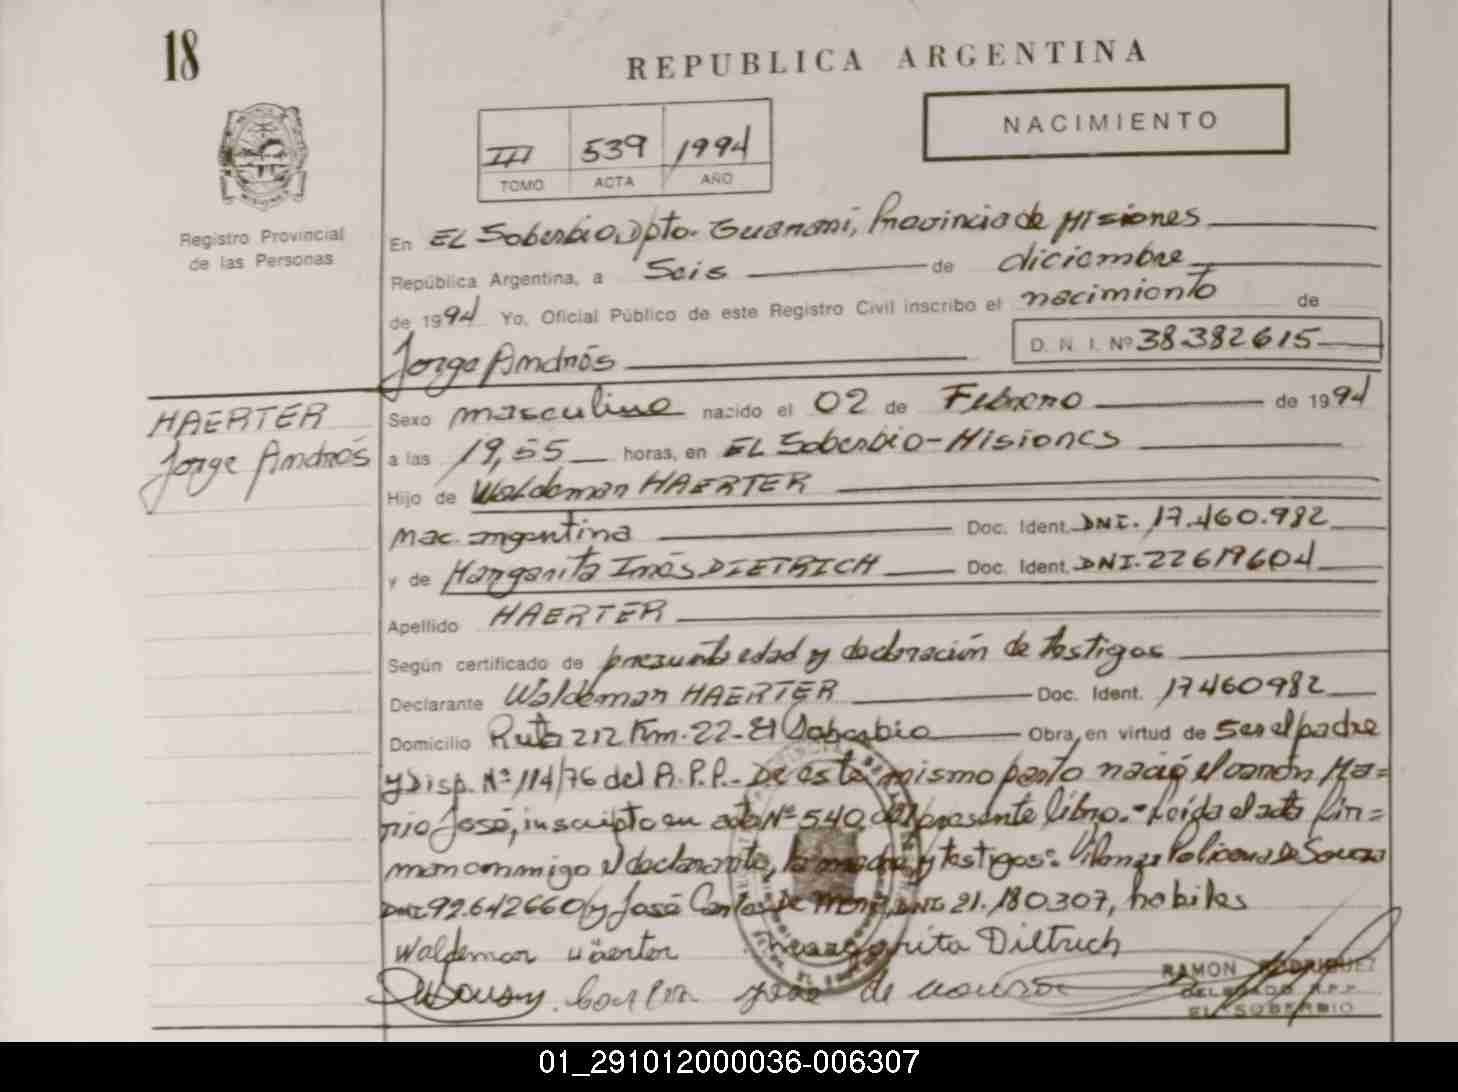 18
REPUBLICA ARGENTINA
NACIMIENTO
III 539 1994
TOMO ACTA AÑO
Registro Provincial
de las Personas
En EL Soberbio, Dpto. Guaraní, Provincia de Misiones
República Argentina, a Seis de diciembre
de 1994 Yo, Oficial Público de este Registro Civil inscribo el nacimiento de
Jorge Andrés D. N. I. Nº 38.382615
HAERTER
Jorge Andrés
Sexo masculino nacido el 02 de Febrero de 1994
a las 19,55 horas, en EL Soberbio-Misiones
Hijo de Waldemar HAERTER
nac. argentina Doc. Ident. DNI. 17.460.982
y de Margarita Inés DIETRICH Doc. Ident. DNI. 22619604
Apellido HAERTER
Según certificado de presunta edad y declaración de testigos
Declarante Waldemar HAERTER Doc. Ident. 17460982
Domicilio Ruta 212 Km. 22-El Soberbio Obra, en virtud de Ser el padre
y Disp. Nº 114/76 del R.P.P.- De este mismo parto nació el varón Ma=
rio José, inscripto en acta Nº 540 del presente libro.- Leída el acta fir=
man conmigo el declarante, la madre y testigos: de Souza
DNI 92.642660 y José Carlos De DNI 21.180307, hábiles
Waldemar Häerter Margarita Dittrich
de
RAMON RODRIGUEZ
DELEGADO R.P.P.
EL SOBERBIO
01_291012000036-006307